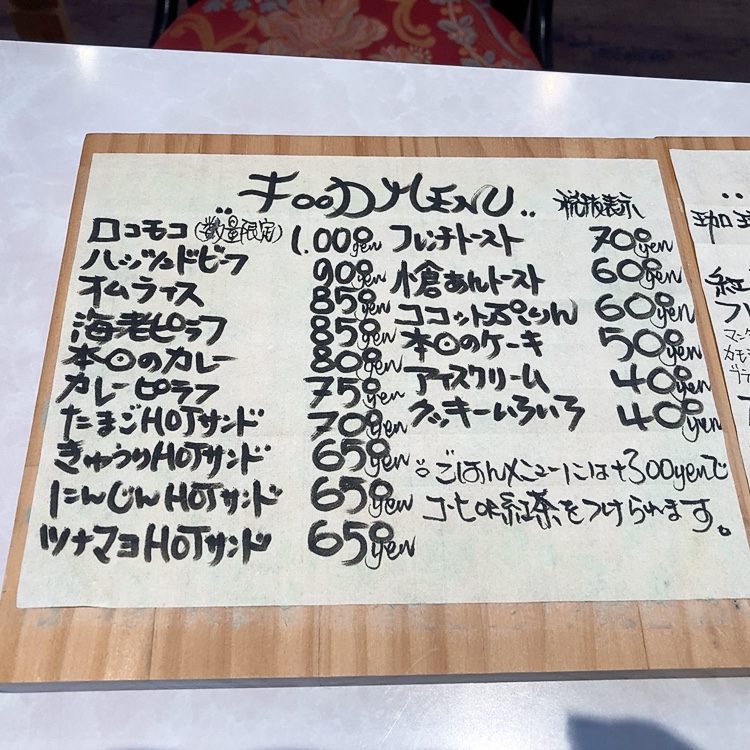 FOOD MENU 税抜表示
ロコモコ(数量限定) 1.000yen
ハッシュドビーフ 900yen
オムライス 850yen
海老ピラフ 850yen
本日のカレー 800yen
カレーピラフ 750yen
たまごHOTサンド 700yen
きゅうりHOTサンド 650yen
にんじんHOTサンド 650yen
ツナマヨHOTサンド 650yen
フレンチトースト 700yen
小倉あんトースト 600yen
ココットぷりん 600yen
本日のケーキ 500yen
アイスクリーム 400yen
クッキーいろいろ 400yen
○ごはんメニューには+300yenで
コーヒーor紅茶をつけられます。
珈
紅